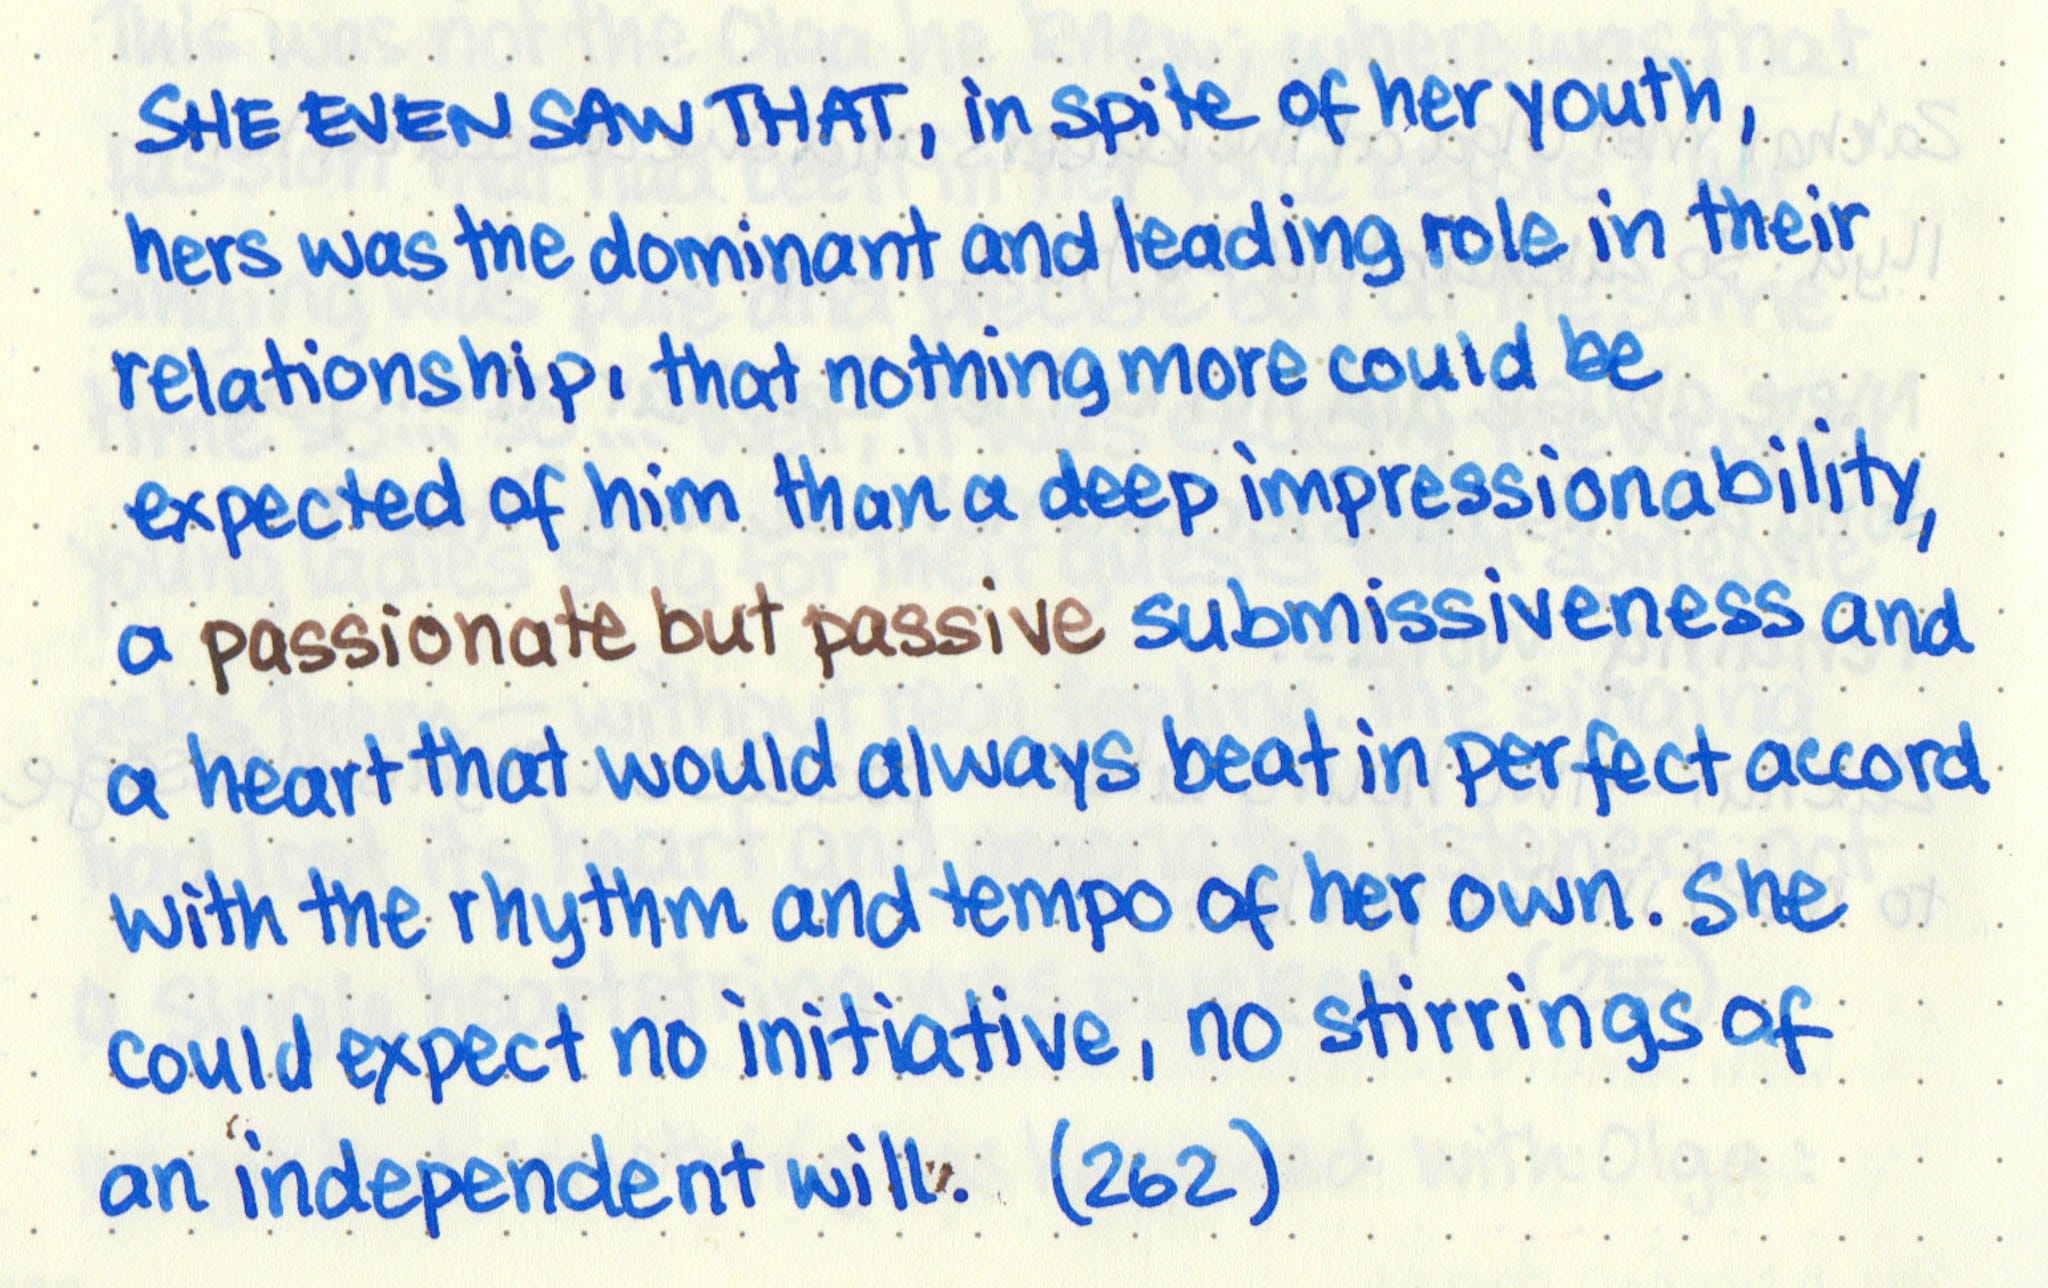 SHE EVEN SAW THAT, in spite of her youth,
hers was the dominant and leading role in their
relationship, that nothing more could be
expected of him than a deep impressionability,
a passionate but passive submissiveness and
a heart that would always beat in perfect accord
with the rhythm and tempo of her own. She
could expect no initiative, no stirrings of
an independent will. (262)